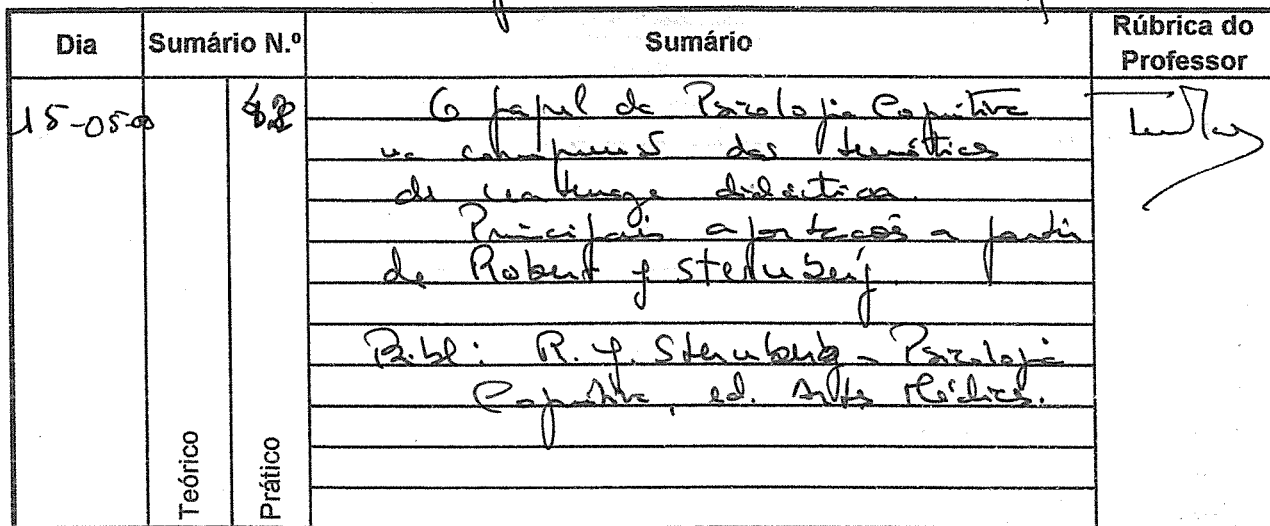 Dia Sumário N.º Sumário Rúbrica do Professor
15-05-0
O papel da Psicologia Cognitiva
na compreensão das temáticas
de natureza didáctica.
Principais aportações a partir
de Robert J Sternberg.
Bibl: R. J. Sternberg - Psicologia
Cognitiva, ed. Artes Médicas.
Teórico
Prático